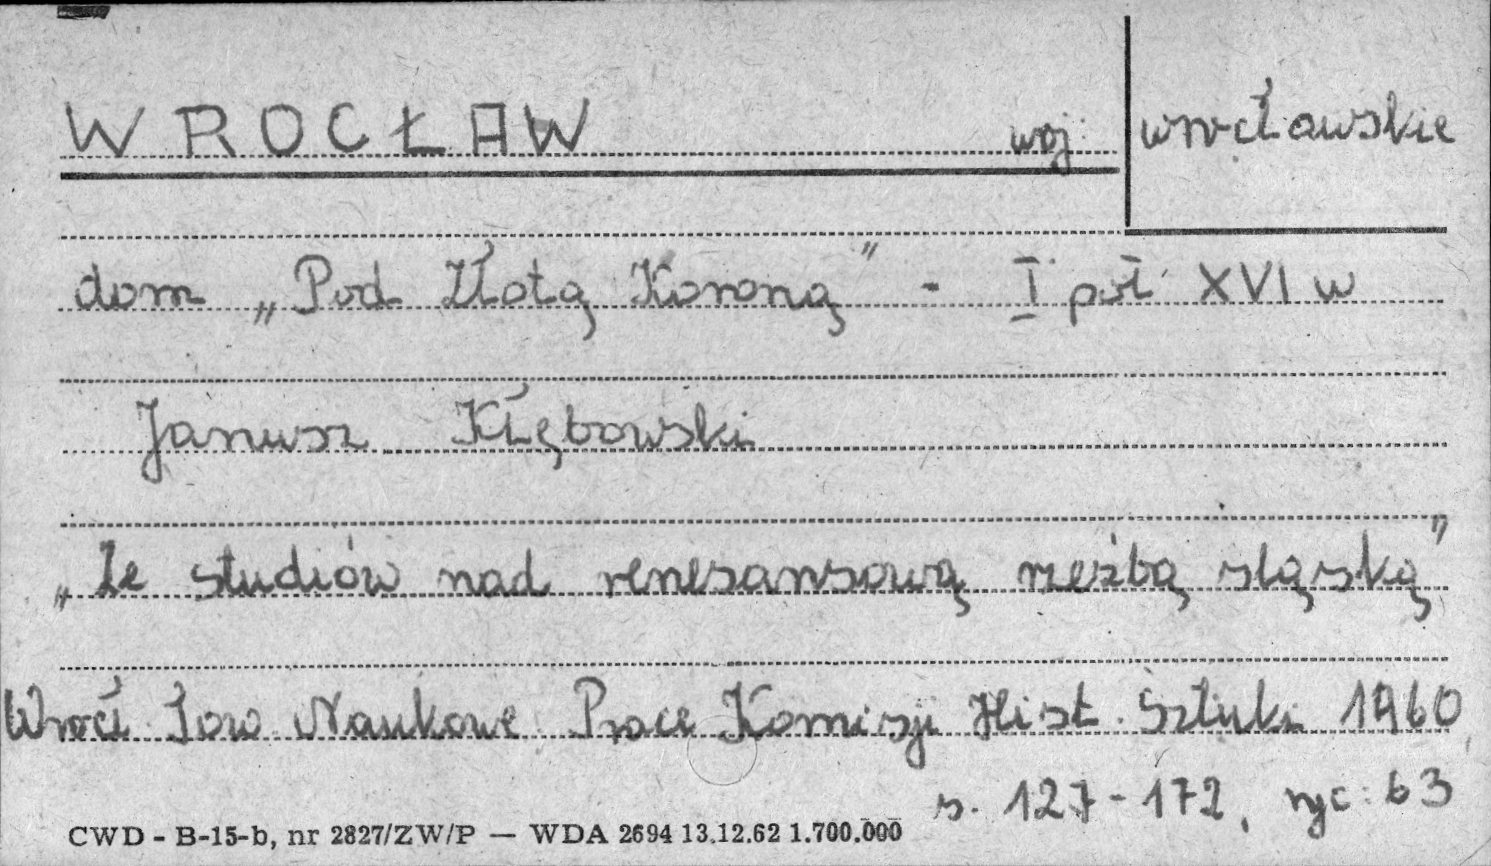 WROCŁAW woj. wrocławskie
dom „Pod Złotą Koroną" - I poł. XVI w
Janusz Kłębowski
„Ze studiów nad renesansową rzeźbą śląską"
Wrocł. Tow. Naukowe Prace Komisji Hist. Sztuki 1960
s. 127-172, ryc. 63
CWD - B-15-b, nr 2827/ZW/P — WDA 2694 13.12.62 1.700.000